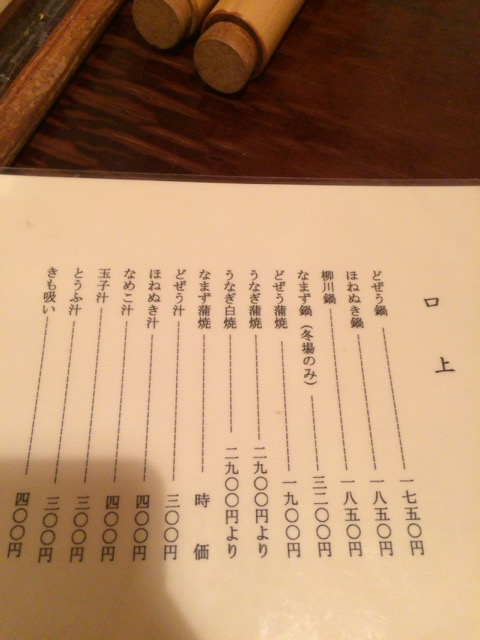 口上
どぜう鍋 一七五〇円
ほねぬき鍋 一八五〇円
柳川鍋 一八五〇円
なまず鍋（冬場のみ） 三二〇〇円
どぜう蒲焼 一九〇〇円
うなぎ蒲焼 二九〇〇円より
うなぎ白焼 二九〇〇円より
なまず蒲焼 時価
どぜう汁 三〇〇円
ほねぬき汁 四〇〇円
なめこ汁 四〇〇円
玉子汁 三〇〇円
とうふ汁 三〇〇円
きも吸い 四〇〇円